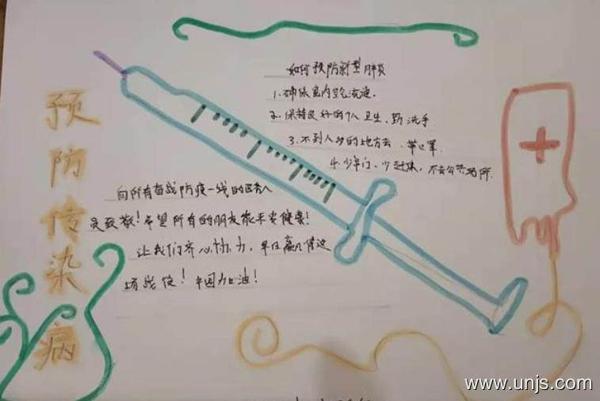 预防传染病
如何预防新型肺炎
1.确保室内空气流通。
2.保持良好的个人卫生,勤洗手
3.不到人多的地方去.带口罩
4.少串门、少赶集,不去公共场所.
向所有奋战防疫一线的医务人
员致敬!希望所有的朋友能平安健康!
让我们齐心协力,早日赢得这
场战役!中国加油!
www.unjs.com